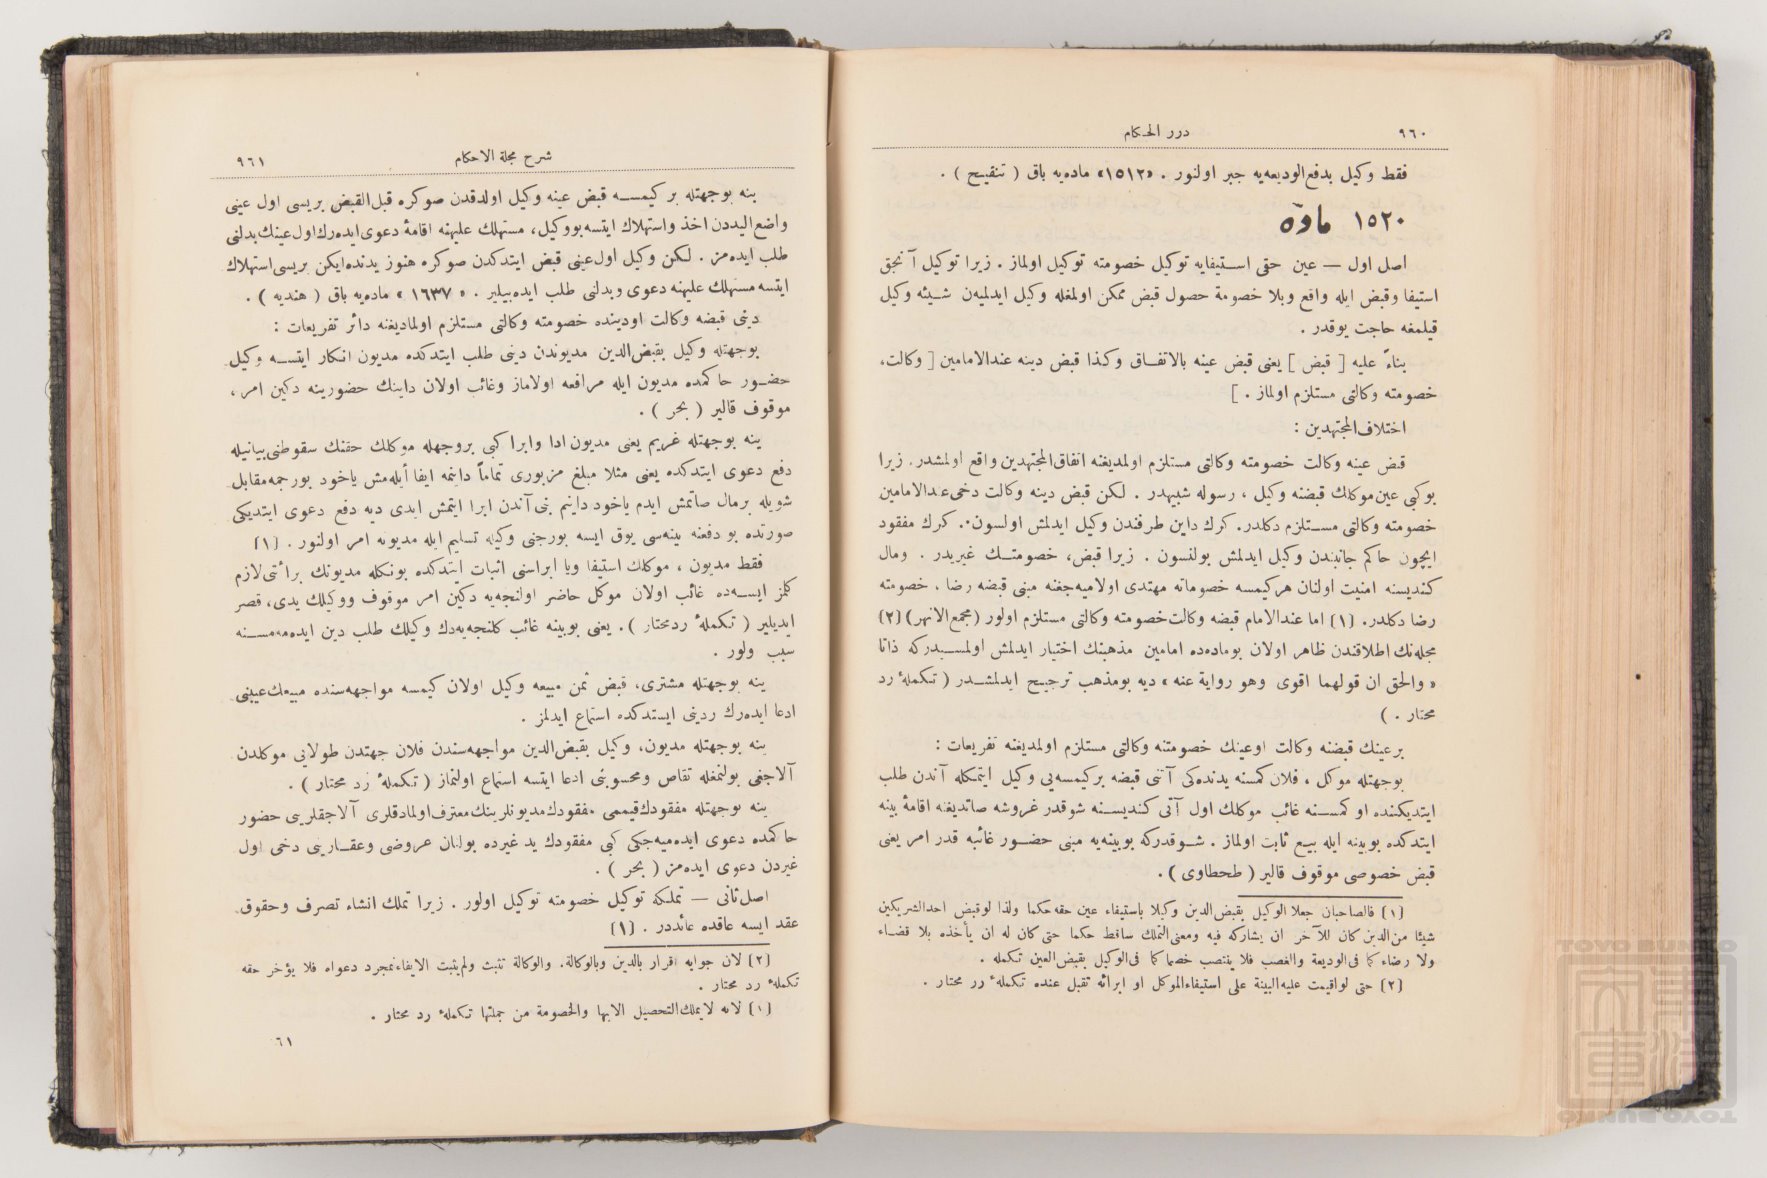 درر الحكام
٩٦٠
فقط وكيل بدفع‌الوديعه‌يه جبر اولنور . «١٥١٢» ماده‌يه باق ( تنقيح ) .
ماده ١٥٢٠
اصل اول — عين حقى استيفايه توكيل خصومته توكيل اولماز . زيرا توكيل آنجق
استيفا وقبض ايله واقع وبلا خصومة حصول قبض ممكن اولمغله وكيل ايدلميه‌ن شيئه وكيل
قيلمغه حاجت يوقدر .
بناءً عليه [ قبض ] يعنى قبض عينه بالاتفاق وكذا قبض دينه عندالامامين [ وكالت،
خصومته وكالتى مستلزم اولماز . ]
اختلاف‌المجتهدين :
قبض عينه وكالت خصومته وكالتى مستلزم اولمديغنه اتفاق‌المجتهدين واقع اولمشدر. زيرا
بوكبى عين‌موكلك قبضنه وكيل ، رسوله شبيهدر . لكن قبض دينه وكالت دخى‌عندالامامين
خصومته وكالتى مستلزم دكلدر. كرك داين طرفندن وكيل ايدلمش اولسون. كرك مفقود
ايچون حاكم جانبندن وكيل ايدلمش بولنسون . زيرا قبض، خصومتك غيريدر . ومال
كنديسنه امنيت اولنان هركيمسه خصوماته مهتدى اولاميه‌جغنه مبنى قبضه رضا . خصومته
رضا دكلدر. (١) اما عندالامام قبضه وكالت‌خصومته وكالتى مستلزم اولور (مجمع‌الانهر) (٢)
مجله‌نك اطلاقندن ظاهر اولان بوماده‌ده امامين مذهبنك اختيار ايدلمش اولمسيدركه ذاتا
« والحق ان قولهما اقوى وهو رواية عنه » ديه بومذهب ترجيح ايدلمشدر ( تكملهٔ رد
محتار . )
برعينك قبضنه وكالت اوعينك خصومتنه وكالتى مستلزم اولمديغنه تفريعات :
بوجهتله موكل ، فلان كمسنه يدنده‌كى آتنى قبضه بركيمسه‌يى وكيل ايتمكله آندن طلب
ايتديكنده او كمسنه غائب موكلك اول آتى كنديسنه شوقدر غروشه صاتديغنه اقامهٔ بينه
ايتدكده بوبينه ايله بيع ثابت اولماز . شوقدركه بوبينه‌يه مبنى حضور غائبه قدر امر يعنى
قبض خصوصى موقوف قالير ( طحطاوى ) .
(١) فالصاحبان جعلا الوكيل بقبض‌الدين وكيلا باستيفاء عين حقه‌حكما ولذا لوقبض احدالشريكين
شيئا من‌الدين كان للآخر ان يشاركه فيه ومعنى‌التملك ساقط حكما حتى كان له ان يأخذه بلا قضاء
ولا رضاء كما فى‌الوديعة والغصب فلا ينتصب خصما كما فى‌الوكيل بقبض‌العين تكمله .
(٢) حتى لواقيمت عليه‌البينة على استيفاءالموكل او ابرائه تقبل عنده تكملهٔ رر محتار .
شرح مجلة الاحكام
٩٦١
ينه بوجهتله بر كيمسه قبض عينه وكيل اولدقدن صوكره قبل‌القبض بريسى اول عينى
واضع‌اليددن اخذ واستهلاك ايتسه بووكيل، مستهلك عليهنه اقامهٔ دعوى‌ايده‌رك‌اول‌عينك‌بدلنى
طلب ايده‌مز . لكن وكيل اول‌عينى قبض ايتدكدن صوكره هنوز يدنده‌ايكن بريسى‌استهلاك
ايتسه مستهلك عليهنه دعوى وبدلنى طلب ايده‌بيلير . « ١٦٣٧ » ماده‌يه باق ( هنديه ) .
دينى قبضه وكالت اودينده خصومته وكالتى مستلزم اولماديغنه دائر تفريعات :
بوجهتله وكيل بقبض‌الدين مديوندن دينى طلب ايتدكده مديون انكار ايتسه وكيل
حضور حاكمده مديون ايله مرافعه اولاماز وغائب اولان داينك حضورينه دكين امر،
موقوف قالير ( بحر ) .
ينه بوجهتله غريم يعنى مديون‌ادا وابرا كبى بروجهله موكلك حقنك سقوطنى‌بيانيله
دفع دعوى ايتدكده يعنى مثلا مبلغ مزبورى تماماً داينمه ايفا أيله‌مش ياخود بورجمه‌مقابل
شويله برمال صاتمش ايدم ياخود داينم بنى آندن ابرا ايتمش ايدى ديه دفع دعوى ايتديكى
صورتده بو دفعنه بينه‌سى يوق ايسه بورجنى وكيله تسليم ايله مديونه امر اولنور . (١)
فقط مديون ، موكلك استيفا ويا ابراسنى اثبات ايتدكده بونكله مديونك برائتى‌لازم
كلمز ايسه‌ده غائب اولان موكل حاضر اولنجه‌يه دكين امر موقوف ووكيلك يدى، قصر
ايديلير ( تكملهٔ ردمحتار ). يعنى بوبينه غائب كلنجه‌يه‌دك وكيلك طلب دين ايده‌مه‌مسنه
سبب ولور .
ينه بوجهتله مشترى، قبض ثمن مبيعه وكيل اولان كيمسه مواجهه‌سنده مبيعك‌عيبنى
ادعا ايده‌رك ردينى ايستدكده استماع ايدلمز .
ينه بوجهتله مديون، وكيل بقبض‌الدين مواجهه‌سندن فلان جهتدن طولايى موكلدن
آلاجغى بولنمغله تقاص ومحسوبنى ادعا ايتسه استماع اولنماز ( تكملهٔ رد محتار ) .
ينه بوجهتله مفقودك‌قيممى مفقودك‌مديونلرينك‌معترف‌اولمادقلرى آلاجقلرينى حضور
حاكمده دعوى ايده‌ميه‌جكى كبى مفقودك يد غيرده بولنان عروضى وعقارينى دخى اول
غيردن دعوى ايده‌مز ( بحر ) .
اصل‌ثانى — تملكه توكيل خصومته توكيل اولور . زيرا تملك انشاء تصرف وحقوق
عقد ايسه عاقده عائددر . (١)
(٢) لان جوابه اقرار بالدين وبالوكالة. والوكالة تثبت ولم‌يثبت الايفاءبمجرد دعواه فلا يؤخر حقه
تكملهٔ رد محتار .
(١) لانه لايملك‌التحصيل الابها والخصومة من جملتها تكملهٔ رد محتار .
٦١
TOYO BUNKO
TOYO BUNKO